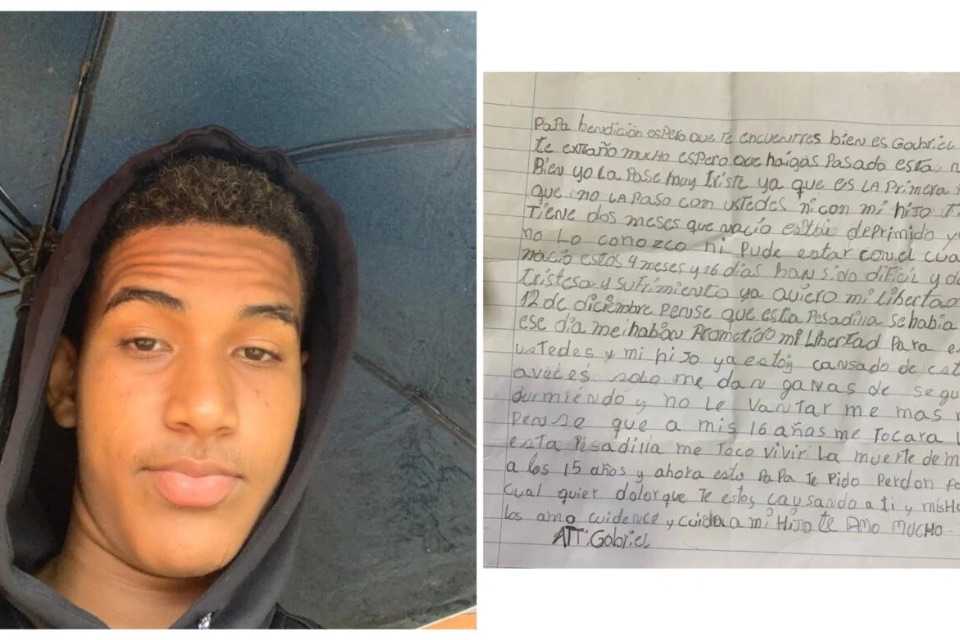 PaPa bendición espero que te encuentres bien es Gabriel
te extraño mucho espero que haigas pasado esta
Bien yo la Pase muy triste ya que es LA Primera
que no LA Paso con ustedes ni con mi hijo
tiene dos meses que nacio estoy deprimido y
no lo conozco ni Pude estar con el
nacio estos 4 meses y 26 dias han sido dificil y
tristesa y sufrimiento ya quiero mi libertad
12 de diciembre Pense que esta Pesadilla se habia
ese dia me habian Prometido mi Libertad Para
ustedes y mi hijo ya estoy cansado de
aveces solo me dan ganas de
durmiendo y no Le vantar me mas
Pense que a mis 16 años me tocara
esta Pesadilla me toco vivir La muerte de
a los 15 años y ahora esto PaPa te Pido Perdon
cual quier dolor que te estoy causando a ti y
los amo cuidence y cuida a mi Hijo te Amo mucho
ATT: Gabriel